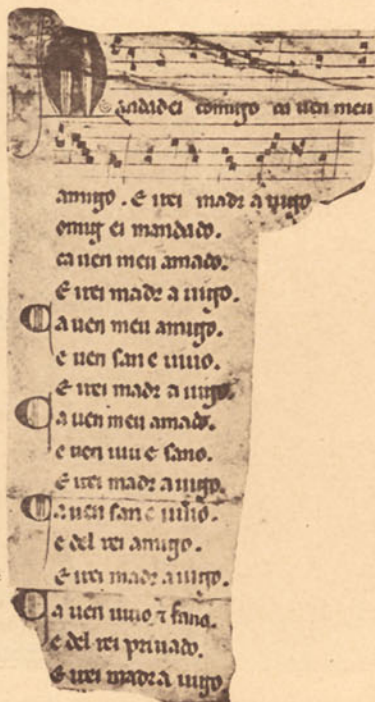 Mandad ei comigo ca uen meu
amigo. E irei madr a uigo
omig ei mandado.
ca uen meu amado.
E irei madr a uigo.
Ca uen meu amigo.
e uen san e uiuo.
E irei madr a uigo.
Ca uen meu amado.
e uen uiu e sano.
E irei madr a uigo.
Ca uen san e uiuo.
e del rei amigo.
E irei madr a uigo.
Ca uen uiuo ⁊ sano.
e del rei priuado.
E irei madr a uigo